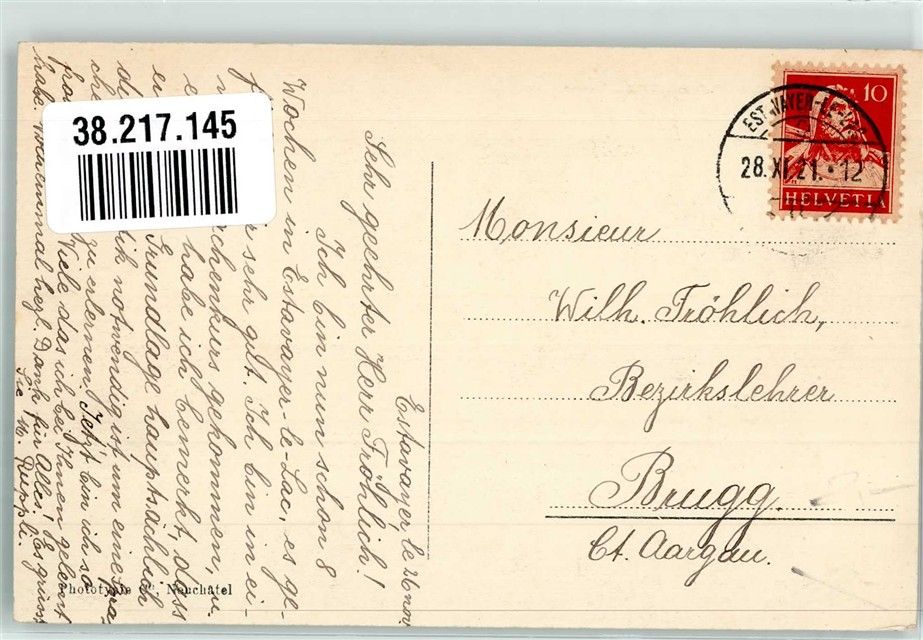 38.217.145
10
HELVETIA
28.XI.21.-12
Monsieur
Wilh. Fröhlich,
Bezirkslehrer
Brugg.
Ct. Aargau.
Estavayer le 26 nov.
Sehr geehrter Herr Fröhlich!
Ich bin nun schon 8
Wochen in Estavayer-le-Lac, es ge-
sehr gut. Ich bin in ei-
gekommen, zu
habe ich bemerkt, dass
Grundlage hauptsächlich
notwendig ist um eine
zu erlernen. Jetzt bin ich so
Viele das ich bei Ihnen gelernt
habe. Noch einmal herzl. Dank für Alles! Es grüsst
Sie
Phototypie Co, Neuchâtel